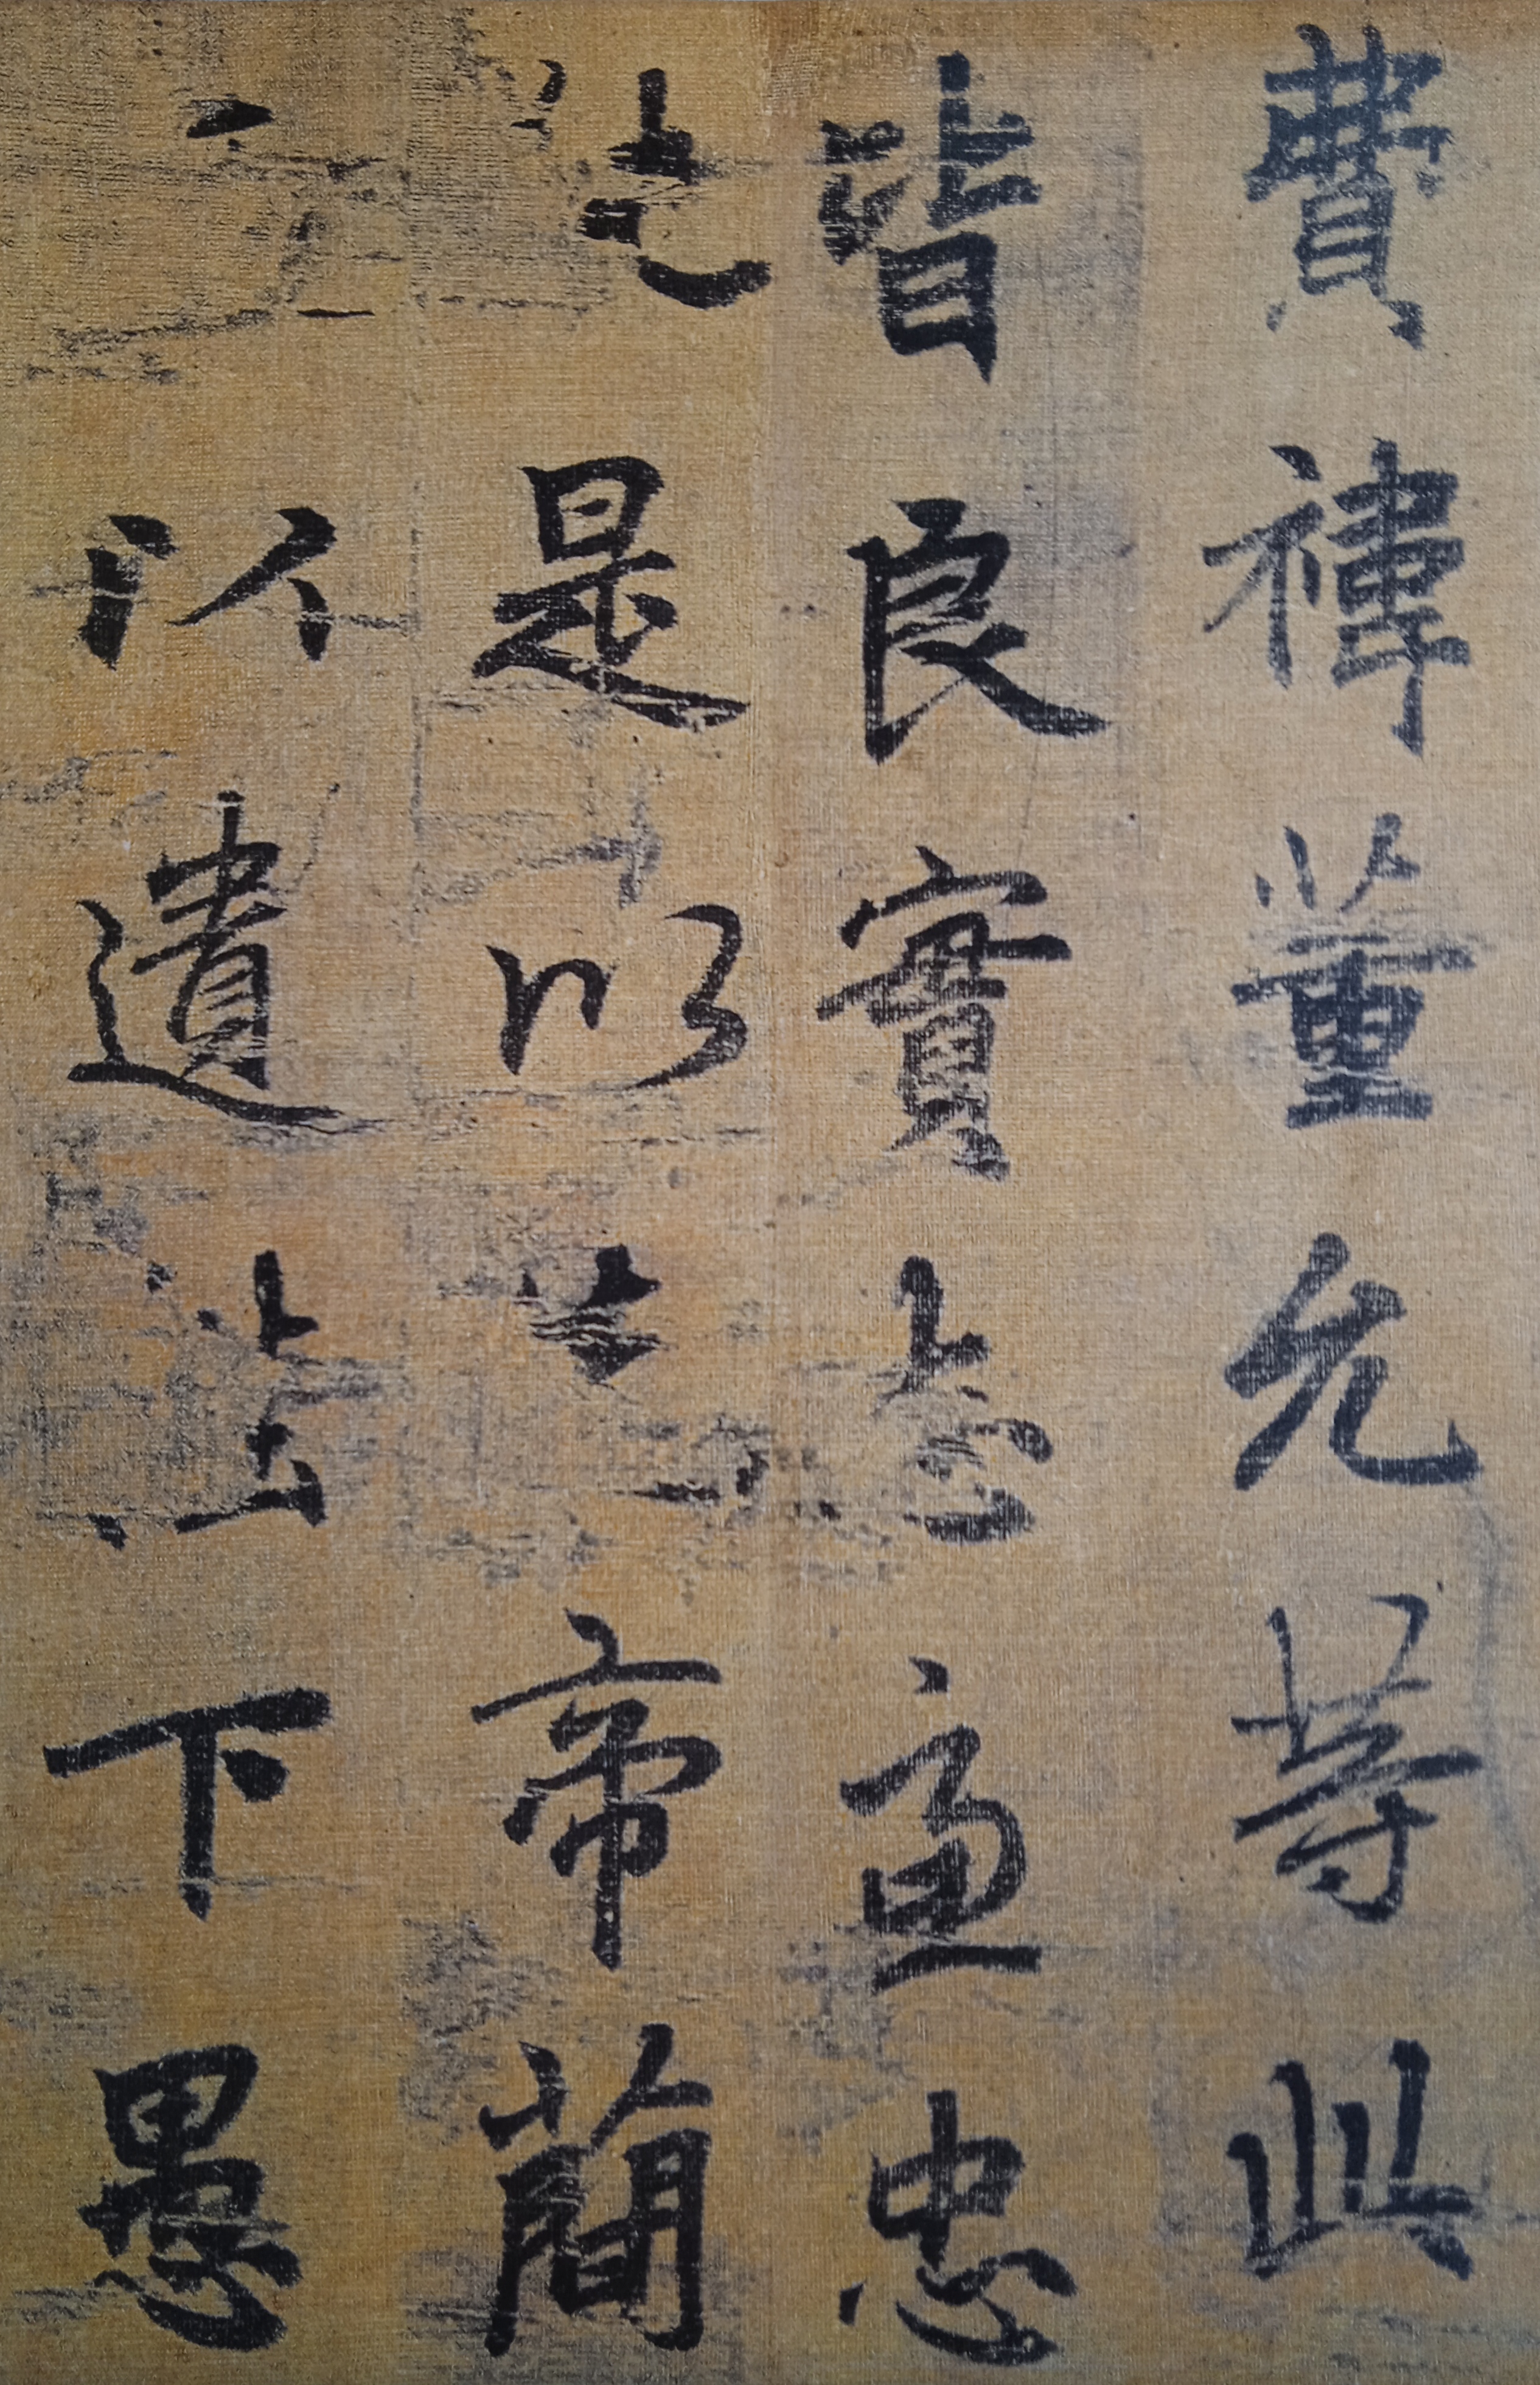 費禕董允等此
皆良實志慮忠
純是以先帝簡
以遺陛下愚